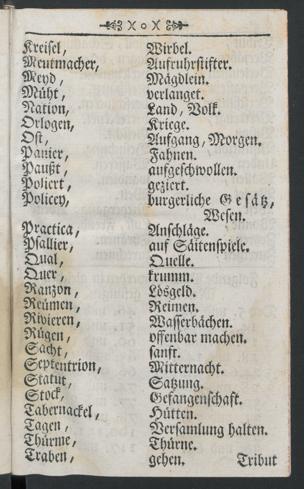 X o X
Kreisel, Wirbel.
Meutmacher, Aufruhrstifter.
Meyd, Mägdlein.
Müht, verlanget.
Nation, Land, Volk.
Orlogen, Kriege.
Ost, Aufgang, Morgen.
Panier, Fahnen.
Paußt, aufgeschwollen.
Poliert, geziert.
Policey, burgerliche Gesätz,
Wesen.
Practica, Anschläge.
Psallier, auf Säitenspiele.
Qual, Quelle.
Quer, krumm.
Ranzon, Lösgeld.
Reümen, Reimen.
Rivieren, Wasserbächen.
Rügen, offenbar machen.
Sächt, sanft.
Septentrion, Mitternacht.
Statut, Satzung.
Stock, Gefangenschaft.
Tabernackel, Hütten.
Tagen, Versamlung halten.
Thürme, Thürne.
Traben, gehen. Tribut